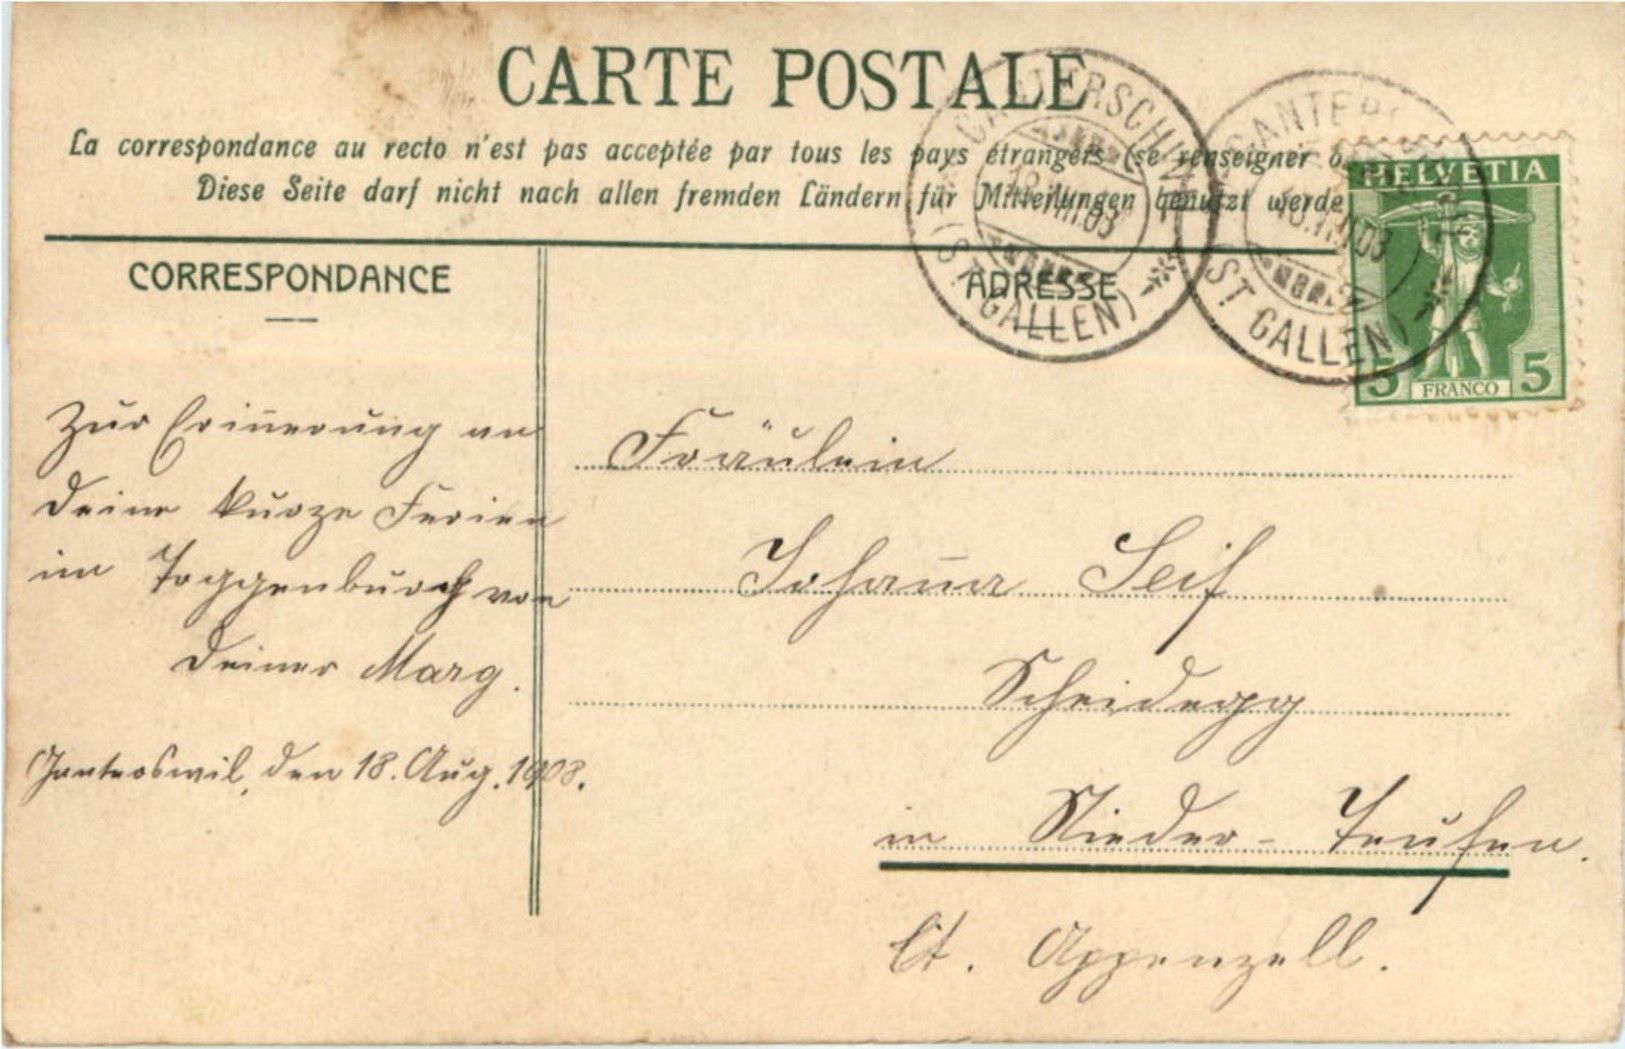 CARTE POSTALE
La correspondance au recto n'est pas acceptée par tous les pays étrangers (se renseigner
Diese Seite darf nicht nach allen fremden Ländern für Mitteilungen benutzt werde
CORRESPONDANCE
ADRESSE
(ST. GALLEN)
(ST. GALLEN)
HELVETIA
5 FRANCO 5
Zur Erin̄erung an
deine kurze Ferien
im Toggenburg von
deiner Marg.
Ganterswil, den 18. Aug. 1908.
Fräulein
Johan̄a Seif
Scheidegg
in Nieder-Teufen.
Ct. Appenzell.